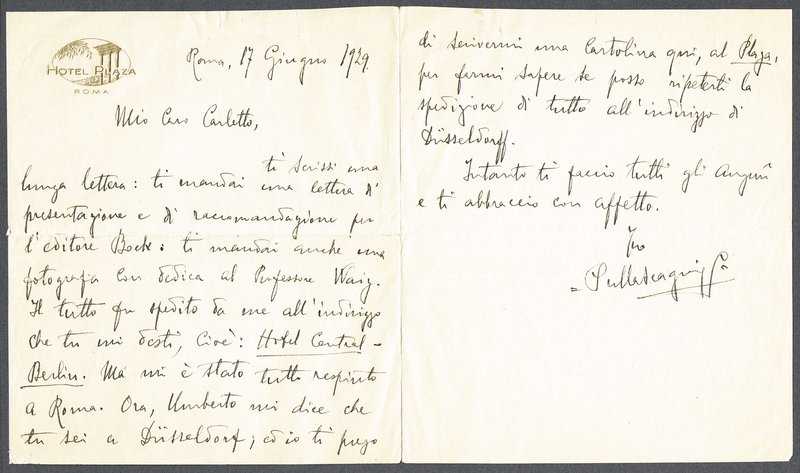 HOTEL PLAZA
ROMA
Roma, 17 Giugno 1929
Mio Caro Carletto,
ti scrissi una
lunga lettera: ti mandai una lettera di
presentazione e di raccomandazione per
l'editore Bock: ti mandai anche una
fotografia con dedica al Professore
Il tutto fu spedito da me all'indirizzo
che tu mi desti, cioè: Hotel Central-
Berlin. Ma mi è stato tutto respinto
a Roma. Ora, Umberto mi dice che
tu sei a Düsseldorf; ed io ti prego
di scrivermi una Cartolina qui, al Plaza,
per farmi sapere se posso ripeterti la
spedizione di tutto all'indirizzo di
Düsseldorff.
Intanto ti faccio tutti gli Augurii
e ti abbraccio con affetto.